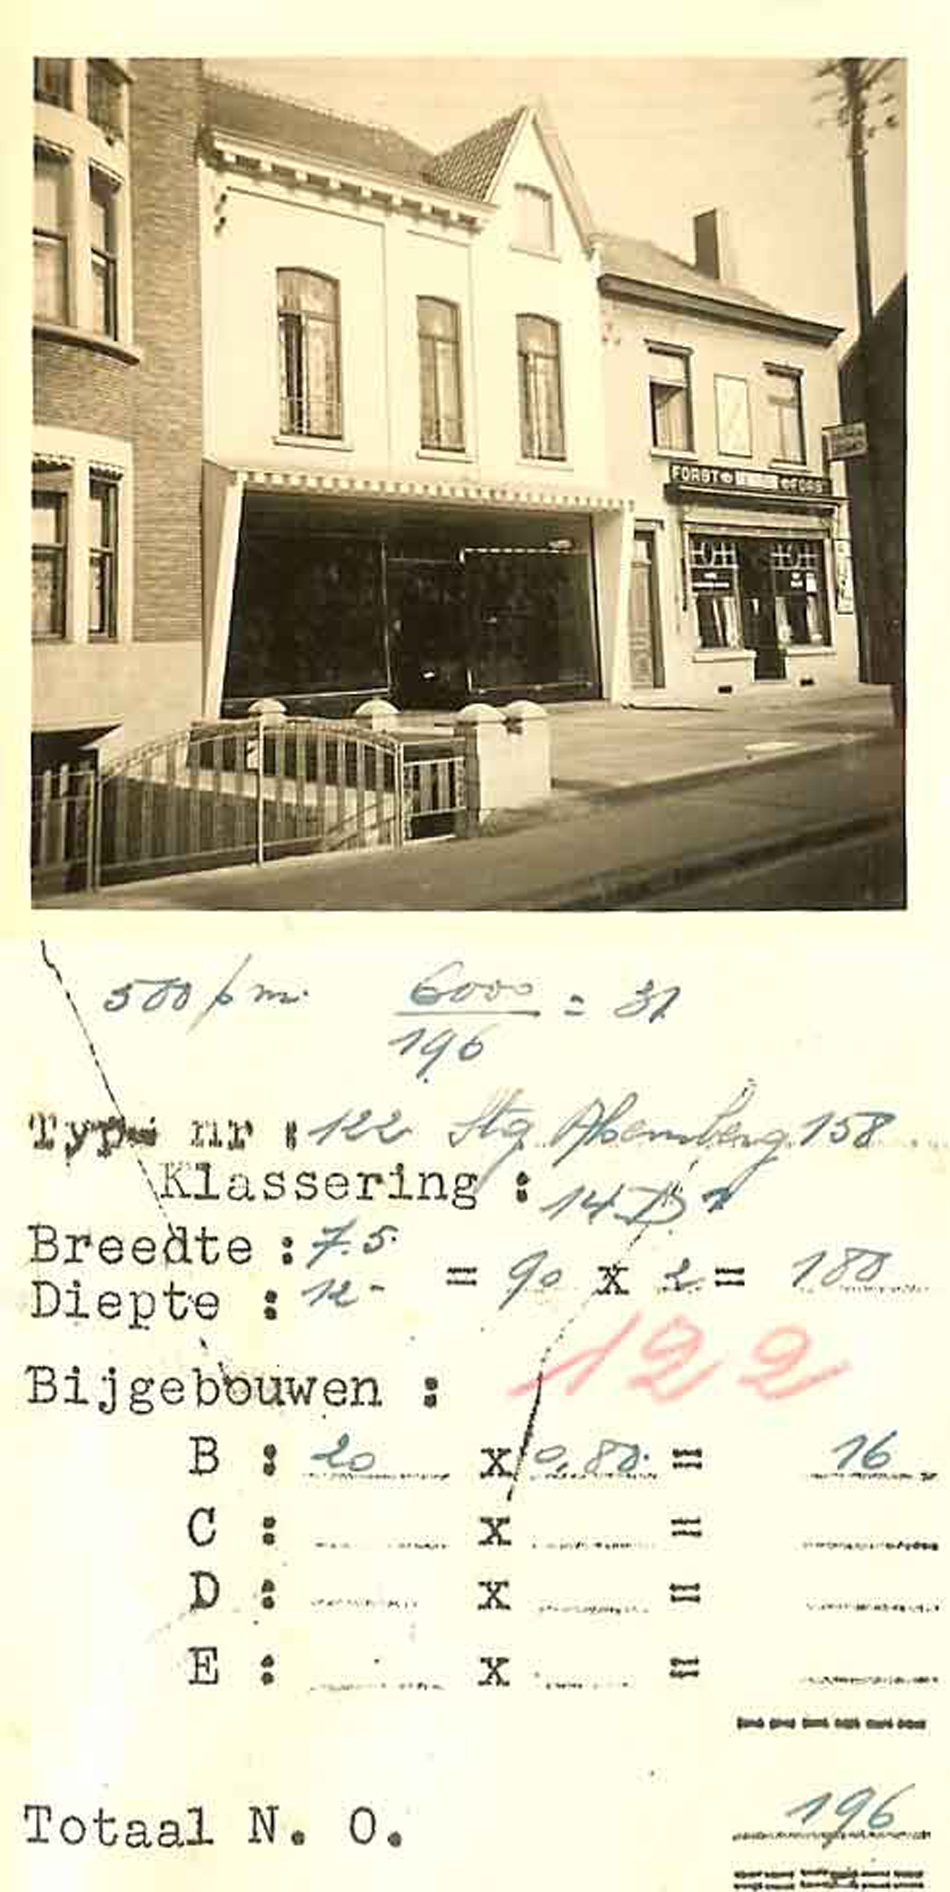 FORST FORS
500 pm. 6000 = 31
196
Type nr : 122 Stg Alsemberg 158
Klassering : 14 D
Breedte : 7.5.
= 90 x 2 = 180
Diepte : 12-
122
Bijgebouwen :
B : 20 x 0,80. = 16
C : x =
D : x =
E : x =
Totaal N. O. 196